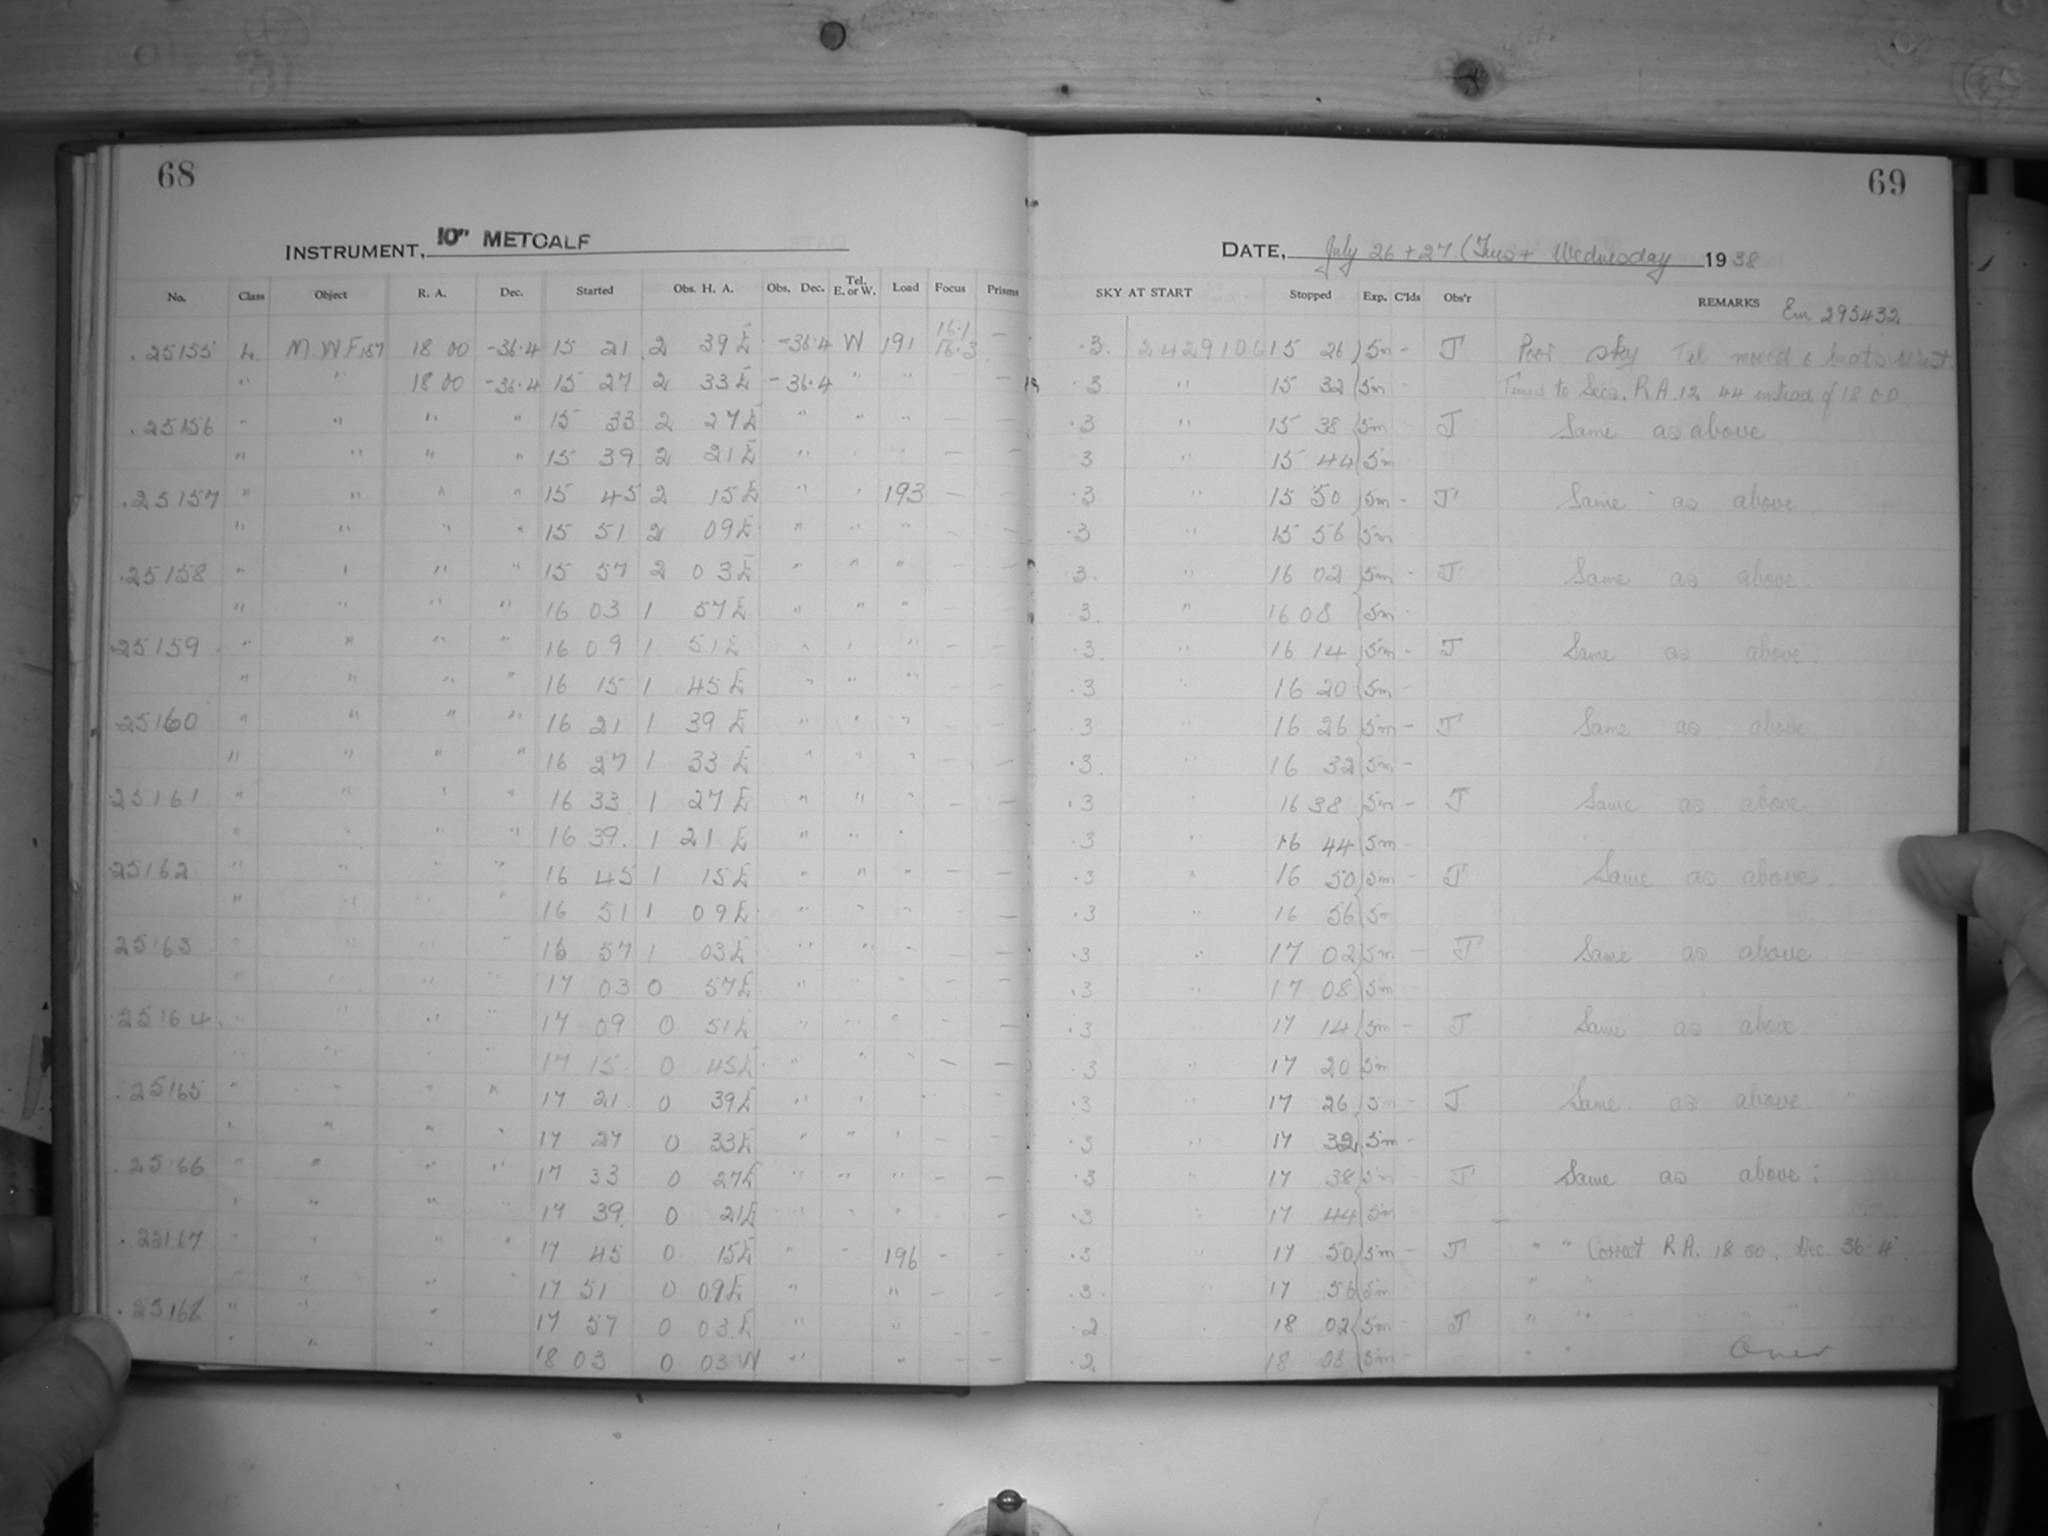 68
INSTRUMENT, 10" METCALF
No. Class Object R. A. Dec. Started Obs. H. A. Obs. Dec. Tel. E. or W. Load Focus Prisms
.25155 L. M.W.F 187 18 00 -36.4 15 21 2 39 E -36.4 W 191 16.1 16.3 —
" " 18 00 -36.4 15 27 2 33 E -36.4 " " —
.25156 " " " " 15 33 2 27 E " " " — —
" " " " 15 39 2 21 E " " " — —
.25157 " " " " 15 45 2 15 E " " 193 — —
" " " " 15 51 2 09 E " " " — —
.25158 " " " " 15 57 2 03 E " " " — —
" " " " 16 03 1 57 E " " " — —
25159 " " " " 16 09 1 51 E " " " — —
" " " " 16 15 1 45 E " " " — —
25160 " " " " 16 21 1 39 E " " " — —
" " " " 16 27 1 33 E " " " — —
25161 " " " " 16 33 1 27 E " " " — —
" " " " 16 39. 1 21 E " " "
25162 " " " " 16 45 1 15 E " " " — —
" " " 16 51 1 09 E " " " —
25163 " " " " 16 57 1 03 E " " " — —
" " " " 17 03 0 57 E " " " — —
25164 " " " " 17 09 0 51 E " " " — —
" " " " 17 15 0 45 E " " " — —
.25165 " " " " 17 21 0 39 E " "
" " " " 17 27 0 33 E " " " — —
.25166 " " " " 17 33 0 27 E " " " — —
" " " 17 39 0 21 E " " " — —
.25167 " " " " 17 45 0 15 E " " 196 — —
" " 17 51 0 09 E " " — —
.25168 " " " 17 57 0 03 E " " — —
" " " 18 03 0 03 W " " — —
69
DATE, July 26 + 27 (Tues + Wednesday 1938
SKY AT START Stopped Exp. C'lds Obs'r REMARKS Em 295432
.3. 2429106 15 26 5m – J Poor sky Tel moved 6 beats West
.3 " 15 32 5m Times to Secs. R.A. 12 44 instead of 18 00
.3 " 15 38 5m J Same as above
3 " 15 44 5m
.3 " 15 50 5m – J Same as above
.3 " 15 56 5m
.3. " 16 02 5m – J Same as above.
.3. " 16 08 5m
.3. " 16 14 5m – J Same as above.
.3 " 16 20 5m –
.3 16 26 5m – J Same as above
.3. " 16 32 5m –
.3 " 16 38 5m – J Same as above
.3 " 16 44 5m –
.3 " 16 50 5m – J Same as above.
.3 " 16 56 5m
.3 " 17 02 5m – J Same as above
.3 " 17 08 5m
.3 " 17 14 5m – J Same as above
.3 " 17 20 5m
.3 " 17 26 5m – J Same as above
.3 " 17 32 5m –
.3 " 17 38 5m – J Same as above:
.3 " 17 44 5m
.3 " 17 50 5m – J " " Correct R.A. 18 00. Dec. 36.4
.3. 17 56 5m " "
.2 18 02 5m – J " " " "
.2 18 08 5m – " " Over